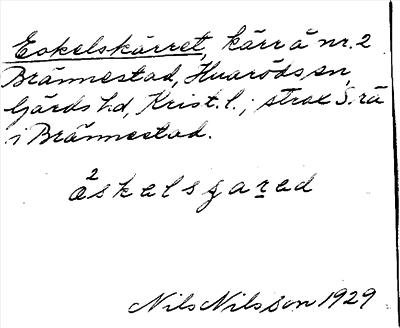 Eskelskärret, kärr å nr. 2
Brännestad, Huaröds sn,
Gärds hd, Krist. l.; strax S. rå
i Brännestad.
2
åskelsgarad
Nils Nilsson 1929